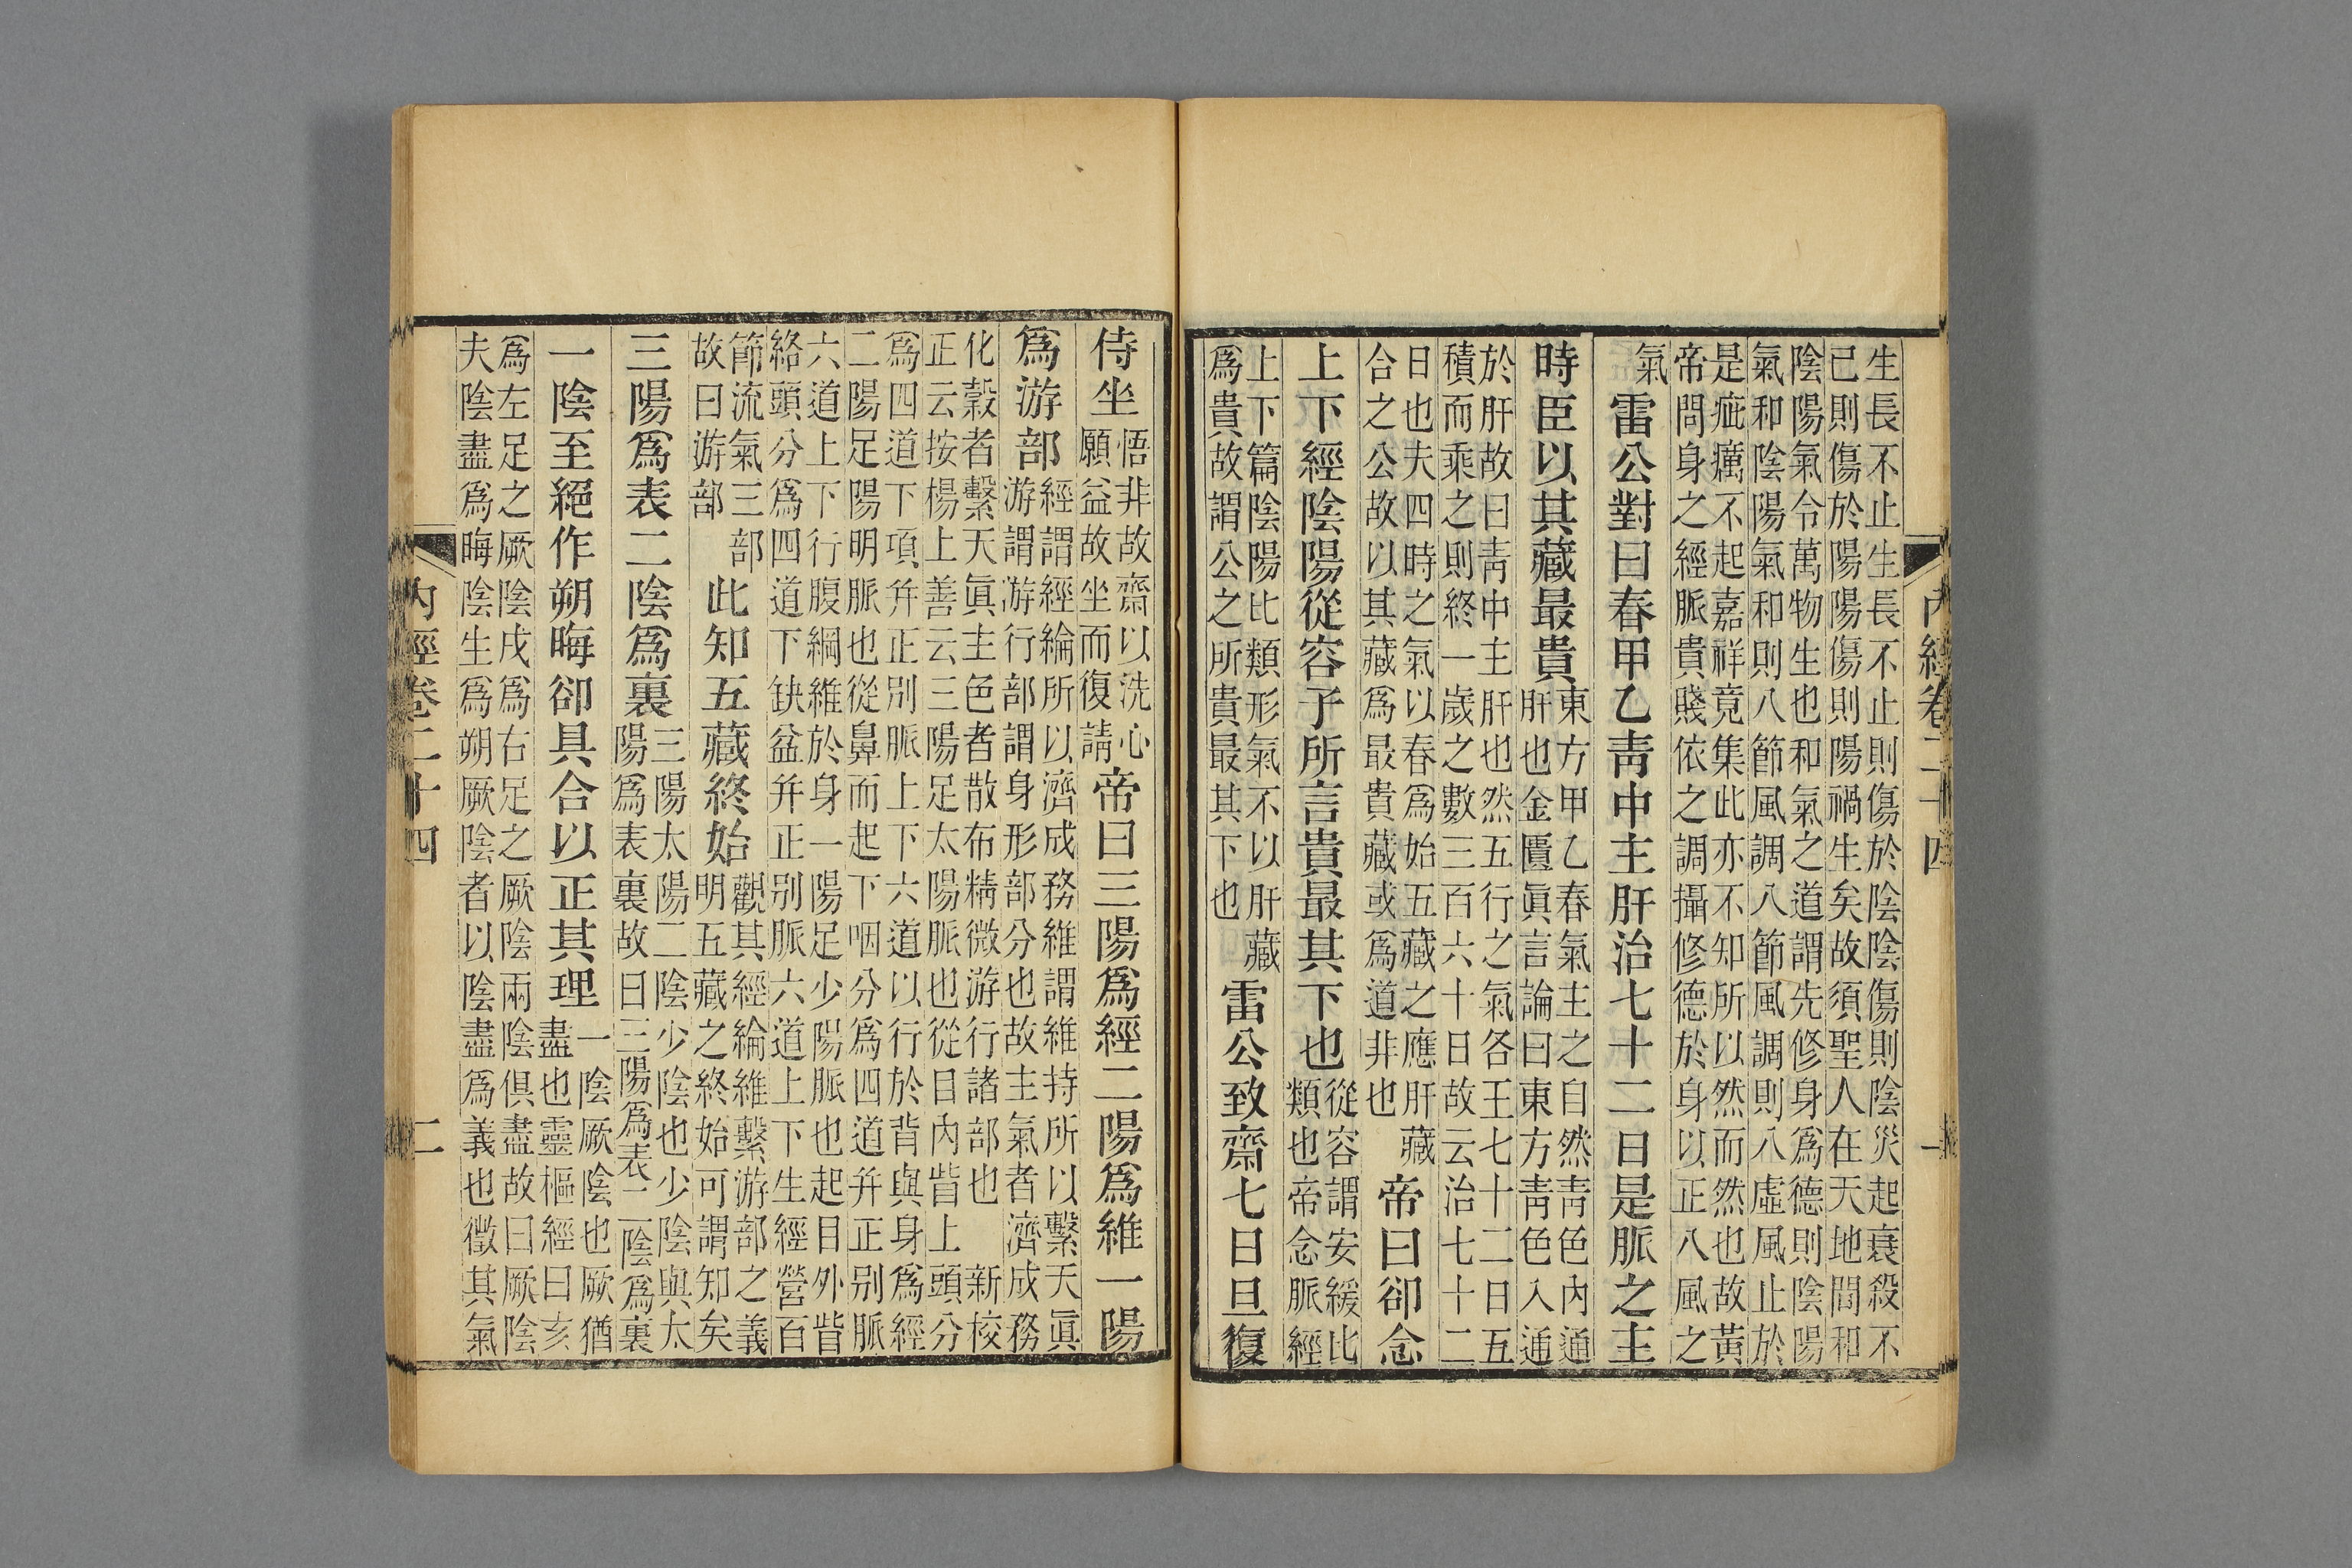 生長不止生長不止則傷於陰陰傷則陰災起衰殺不
已則傷於陽陽傷則陽禍生矣故須聖人在天地間和
陰陽氣令萬物生也和氣之道謂先修身爲德則陰陽
氣和陰陽氣和則八節風調八節風調則八虛風止於
是疵癘不起嘉祥竟集此亦不知所以然而然也故黃
帝問身之經脈貴賤依之調攝修德於身以正八風之
氣
雷公對曰春甲乙靑中主肝治七十二日是脈之主
時臣以其藏最貴
東方甲乙春氣主之自然靑色內通
肝也金匱眞言論曰東方靑色入通
於肝故曰靑中主肝也然五行之氣各王七十二日五
積而乘之則終一歲之數三百六十日故云治七十二
日也夫四時之氣以春爲始五藏之應肝藏
合之公故以其藏爲最貴藏或爲道非也
帝曰卻念
上下經陰陽從容子所言貴最其下也
從容謂安緩比
類也帝念脈經
上下篇陰陽比類形氣不以肝藏
爲貴故謂公之所貴最其下也
雷公致齋七日旦復
內經卷二十四
一
侍坐
悟非故齋以洗心
願益故坐而復請
帝曰三陽爲經二陽爲維一陽
爲游部
經謂經綸所以濟成務維謂維持所以繫天眞
游謂游行部謂身形部分也故主氣者濟成務
化穀者繫天眞主色者散布精微游行諸部也
新校
正云按楊上善云三陽足太陽脈也從目內眥上頭分
爲四道下項并正別脈上下六道以行於背與身爲經
二陽足陽明脈也從鼻而起下咽分爲四道并正別脈
六道上下行腹綱維於身一陽足少陽脈也起目外眥
絡頭分爲四道下缺盆并正別脈六道上下生經營百
節流氣三部
故曰游部
此知五藏終始
觀其經綸維繫游部之義
明五藏之終始可謂知矣
三陽爲表二陰爲裏
三陽太陽二陰少陰也少陰與太
陽爲表裏故曰三陽爲表二陰爲裏
一陰至絕作朔晦卻具合以正其理
一陰厥陰也厥猶
盡也靈樞經曰亥
爲左足之厥陰戌爲右足之厥陰兩陰俱盡故曰厥陰
夫陰盡爲晦陰生爲朔厥陰者以陰盡爲義也徵其氣
內經卷二十四
二